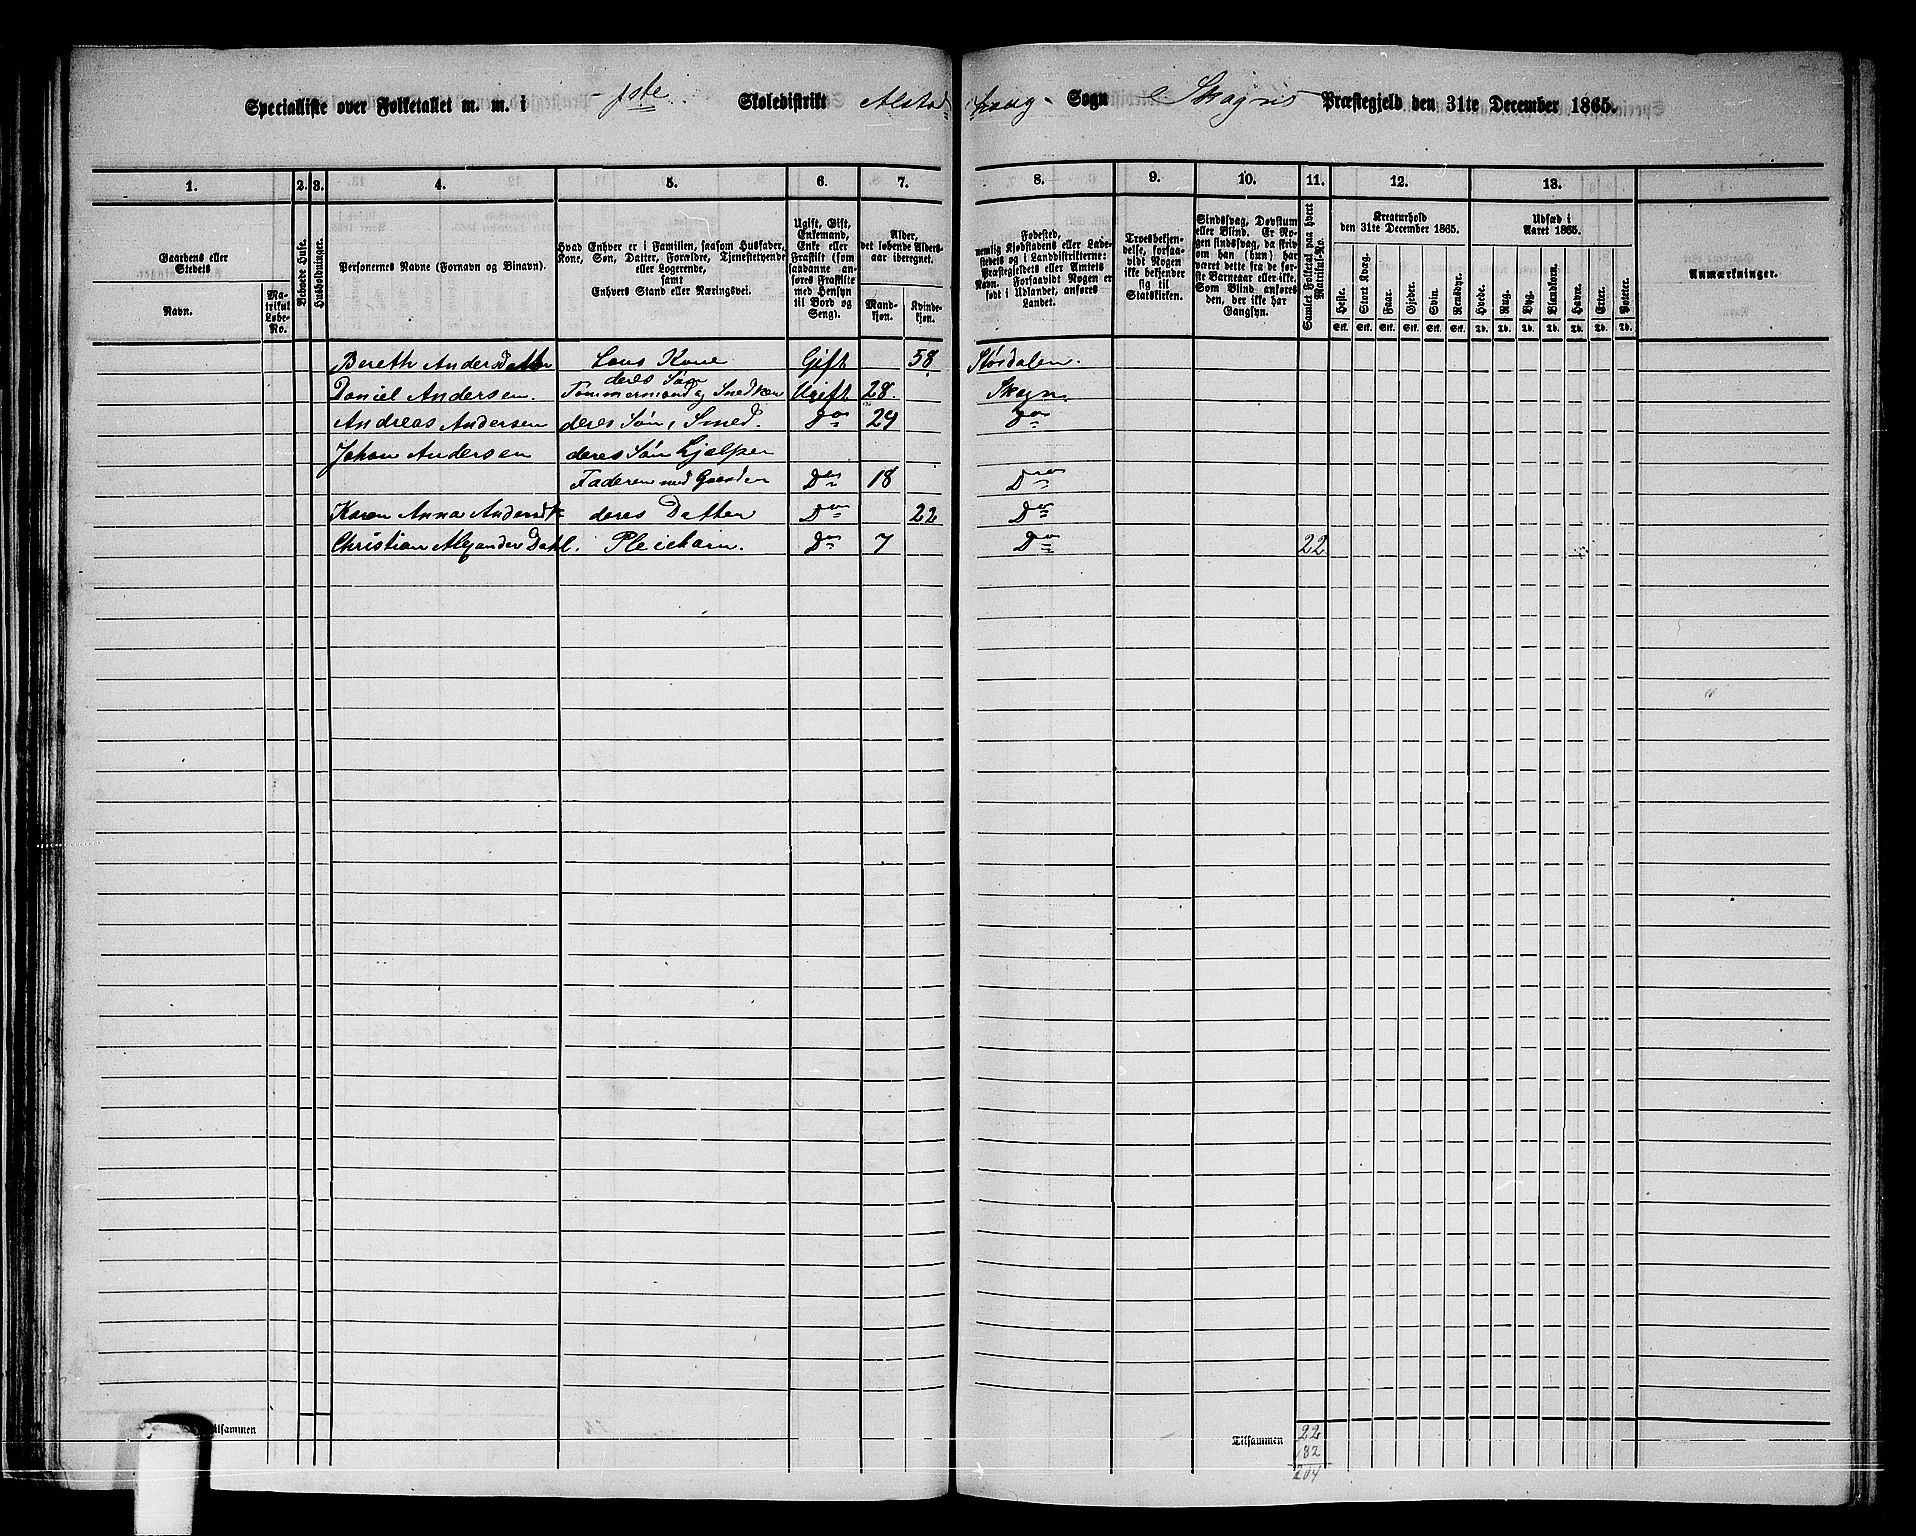 Specialliste over Folketallet m. m. i 1ste Skoledistrikt Alstadhaug Sogn Skogns Præstegjeld den 31te December 1865.
1. 2. 3. 4. 5. 6. 7. 8. 9. 10. 11. 12. 13.
Gaardens eller Stedets
Navn.
Matrikul Løbe-No.
Beboede Huse.
Husholdninger.
Personernes Navne (Fornavn og Binavn).
Hvad Enhver er i Familien, saasom Husfader, Kone, Søn, Datter, Forældre, Tjenestetyende eller Logerende, samt Enhvers Stand eller Næringsvei.
Ugift, Gift, Enkemand, Enke eller Fraskilt (som saadanne anføres Fraskilte med Hensyn til Bord og Seng).
Alder, det løbende Alders-aar iberegnet.
Mand-kjøn.
Kvinde-kjøn.
Fødested, nemlig Kjøbstadens eller Lade-stedets og i Landdistrikterne: Præstegjeldets eller Amtets Navn. Forsaavidt Nogen er født i Udlandet, anføres Landet.
Troesbekjendelse, forsaavidt Nogen ikke bekjender sig til Statskirken.
Sindssvag, Døvstum eller Blind. Er Nogen sindssvag, da skrives om han (hun) har været dette fra de første Barneaar eller ikke. Som Blind anføres den, der ikke har Gangsyn.
Samlet Folketal paa hvert Matrikul-No.
Kreaturhold den 31te December 1865.
Heste. Stort Kvæg. Faar. Gjeder. Svin. Rensdyr.
Stk. Stk. Stk. Stk. Stk. Stk.
Udsæd i Aaret 1865.
Hvede. Rug. Byg. Blandkorn. Havre. Erter. Poteter.
Td. Td. Td. Td. Td. Td. Td.
Anmærkninger.
Bereth Andersdatter Hans Kone Gift 58 Størdalen.
deres Søn
Daniel Andersen. Tømmermand og Snedker Ugift 28. Skogn
Andreas Andersen deres Søn, Smed. Do 24 Do
Johan Andersen deres Søn hjelper
Faderen med Gaarden Do 18 Do
Karen Anna Andersdt. deres Datter Do 22 Do
Christian Alexander Dahl. Pleiebarn. Do 7 Do 22
Tilsammen 22
182
204